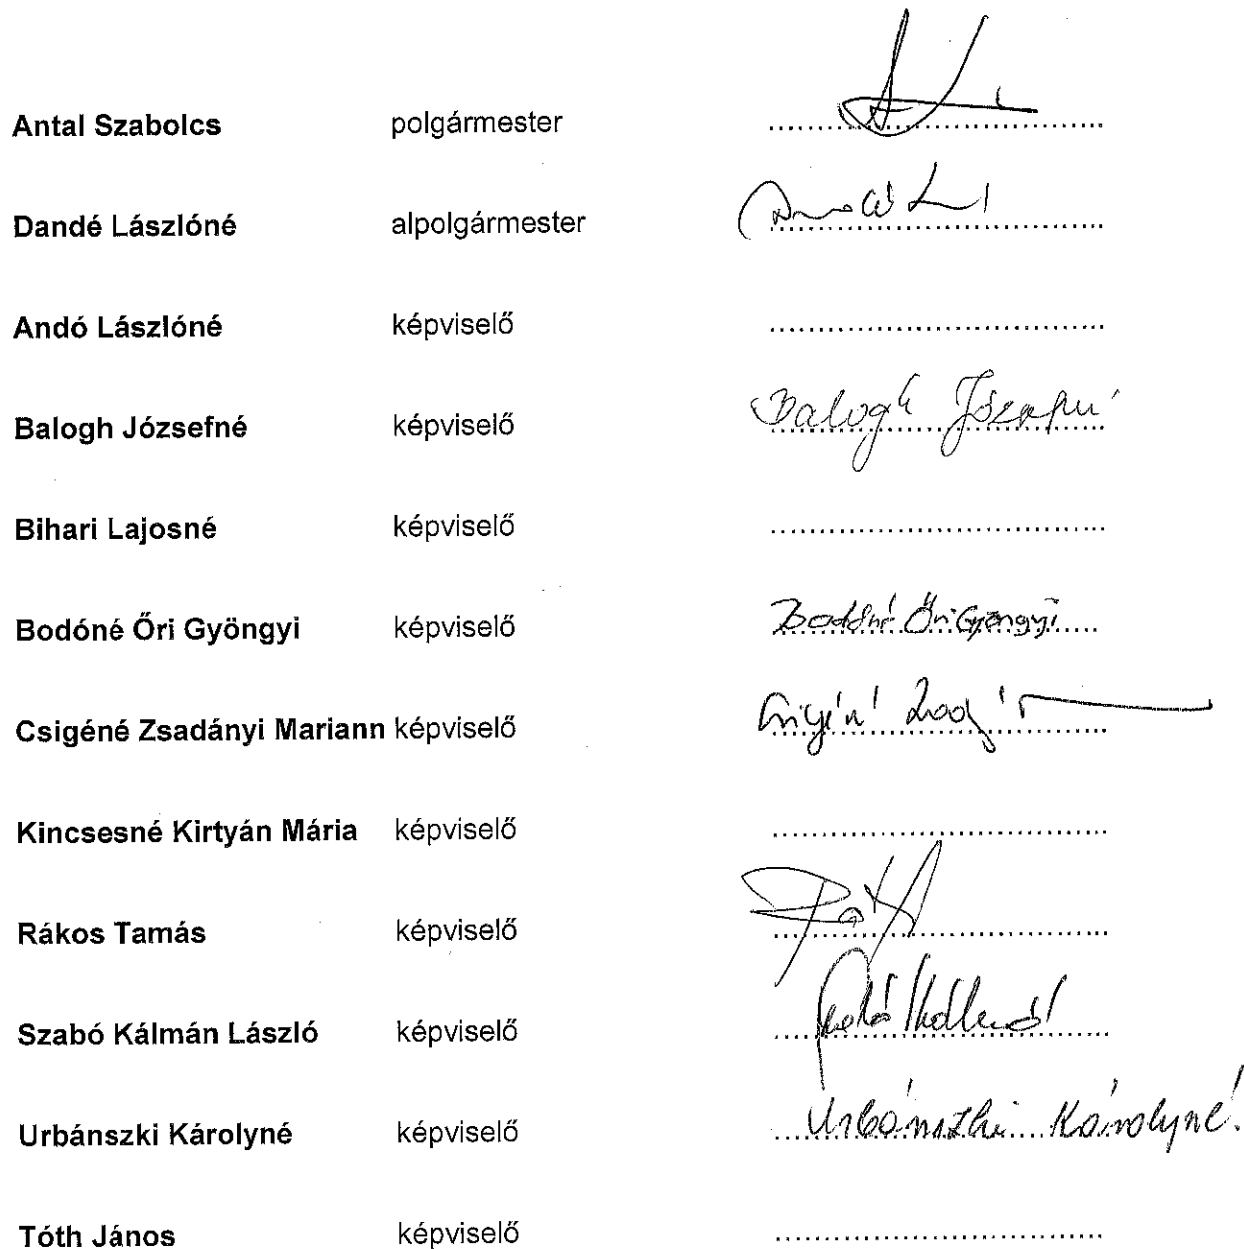 Antal Szabolcs polgármester ..............................
Dandé Lászlóné alpolgármester ..............................
Andó Lászlóné képviselő ..............................
Balogh Józsefné képviselő Balogh Józsefné
Bihari Lajosné képviselő ..............................
Bodóné Őri Gyöngyi képviselő Bodóné Őri Gyöngyi
Csigéné Zsadányi Mariann képviselő Csigéné
Kincsesné Kirtyán Mária képviselő ..............................
Rákos Tamás képviselő ..............................
Szabó Kálmán László képviselő ..............................
Urbánszki Károlyné képviselő Urbánszki Károlyné
Tóth János képviselő ..............................